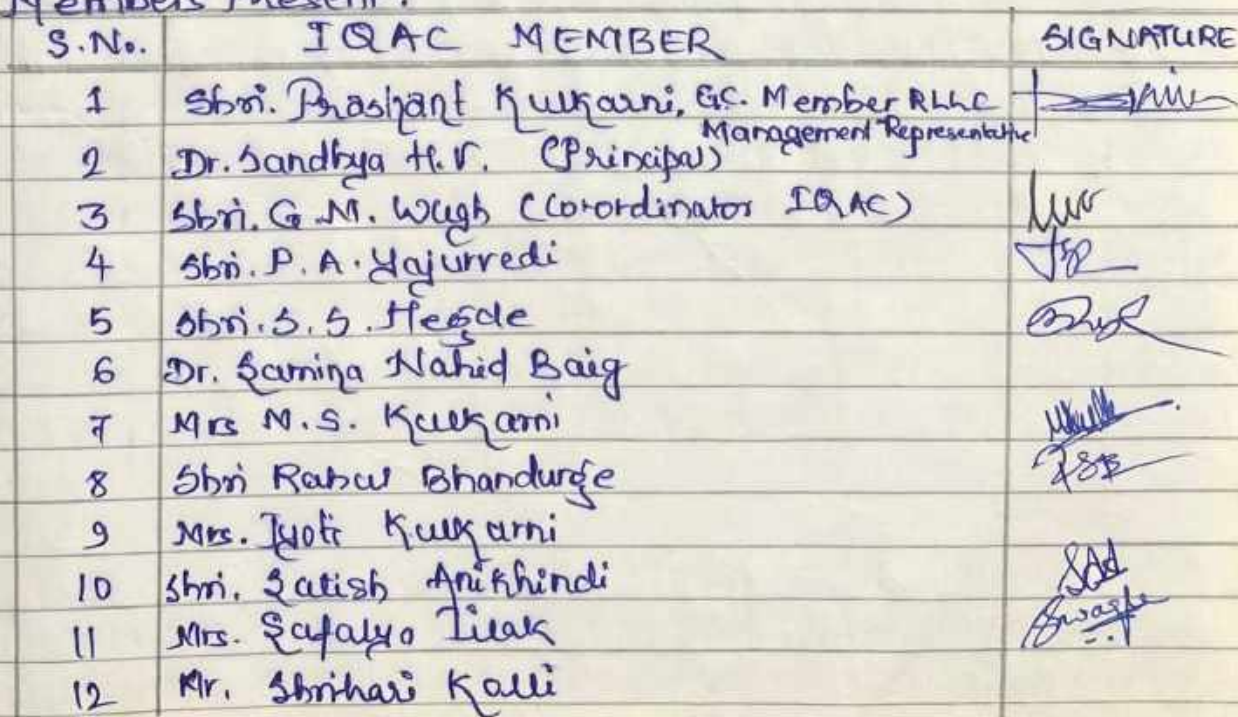 Members Present :
S.No. IQAC MEMBER SIGNATURE
1 Shri. Prashant Kulkarni, GC. Member RLLC
Management Representative
2 Dr. Sandhya H.V. (Principal)
3 Shri. G.M. Wagh (Co-ordinator IQAC)
4 Shri. P.A. Yajurvedi
5 Shri. S.S. Hegde
6 Dr. Samina Nahid Baig
7 Mrs N.S. Kulkarni
8 Shri Rahul Bhandurge
9 Mrs. Jyoti Kulkarni
10 Shri. Satish Anikhindi
11 Mrs. Safalya Tilak
12 Mr. Shrihari Kalli